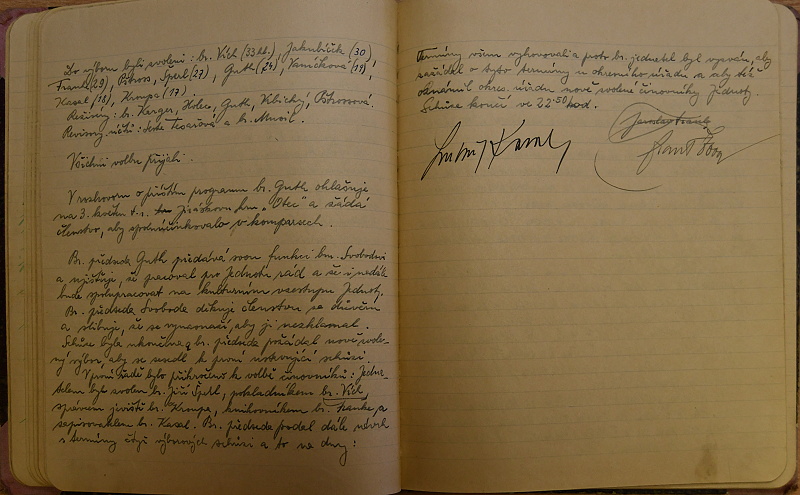 Do výboru byli zvoleni: br. Vích (33 hl.), Jakubíček (30),
Frank (29), Pitross, Šperl (27), Guth (24), Vaníčková (19),
Kasal (18), Kroupa (17).
Režiséry: br. Kerger, Holec, Guth, Vlbický, Pitrossová.
Revisory účtů: sestra Tesařová a br. Musil.
Všichni volbu přijali.
V rozhovoru o příštím programu br. Guth ohlašuje
na 3. května t. r. Jiráskovu hru „Otec" a žádá
členstvo, aby spoluúčinkovalo v komparsech.
Br. předseda Guth předává svou funkci br. Svobodovi
a ujišťuje, že pracoval pro Jednotu rád a že i nadále
bude spolupracovat na kulturním vzestupu Jednoty.
Br. předseda Svoboda děkuje členstvu za důvěru
a slibuje, že se vynasnaží, aby ji nezklamal.
Schůze byla ukončena, br. předseda požádal nově zvole-
ný výbor, aby se sešel k první ustavující schůzi.
V první řadě bylo přikročeno k volbě činovníků: Jedna-
telem byl zvolen br. Jiří Šperl, pokladníkem br. Vích,
správcem jeviště br. Kroupa, knihovníkem br. Franke, a
zapisovatelem br. Kasal. Br. předseda podal dále návrh
s termíny čtyř výborových schůzí a to na dny:
Termíny všem vyhovovali a proto br. jednatel byl vyzván, aby
zažádal o tyto termíny u okresního úřadu a aby též
oznámil okres. úřadu nově zvolené činovníky Jednoty.
Schůze končí ve 22.50 hod.